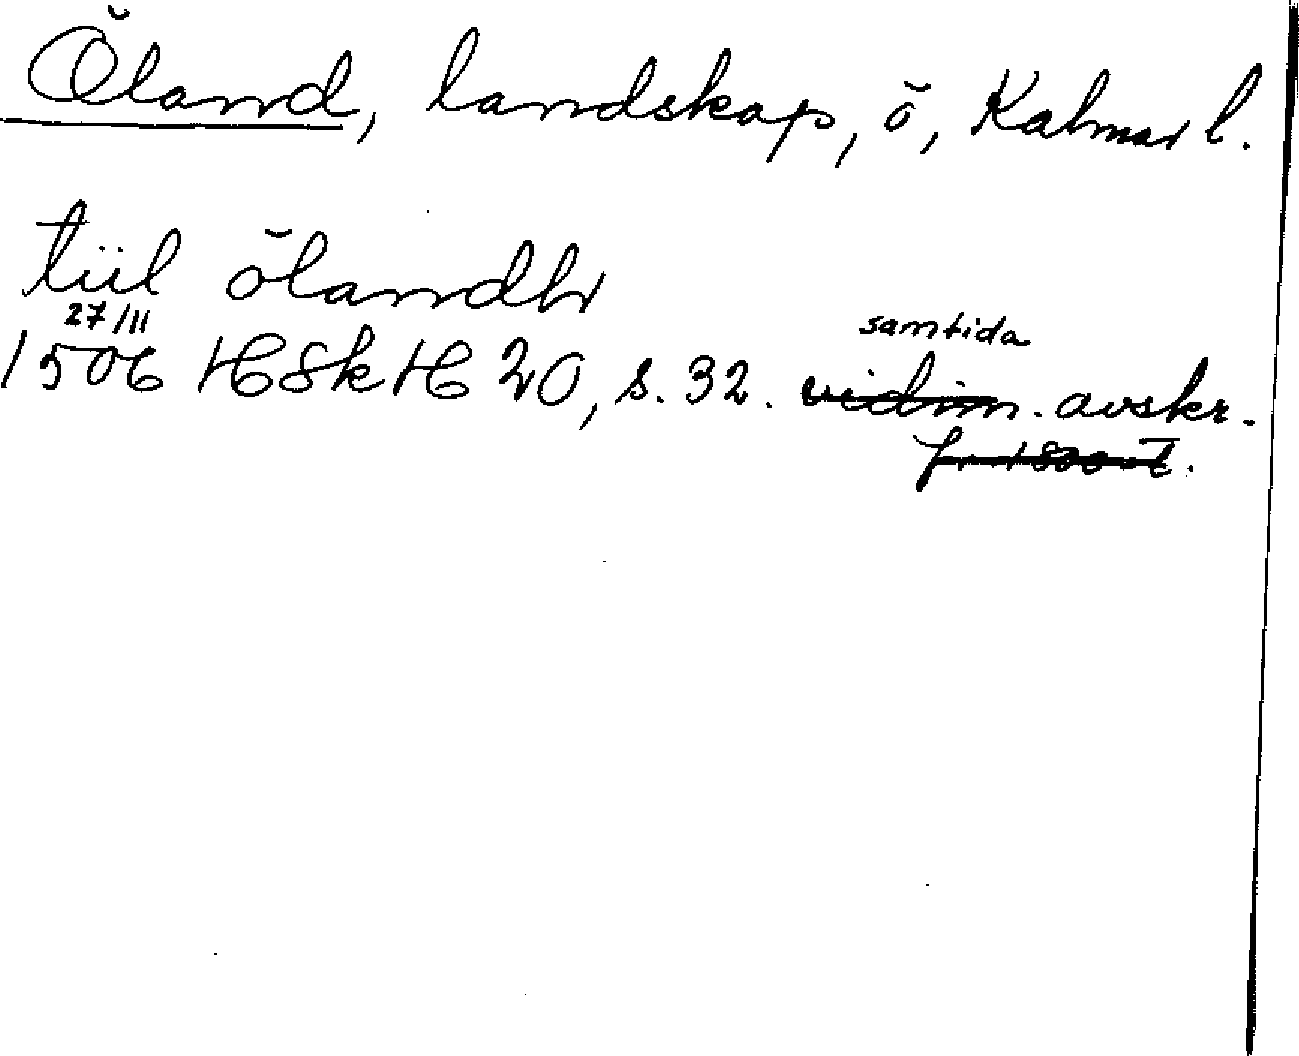 Öland, landskap, ö, Kalmar l.
tiil ölandh
27/11
1506 HSkH 20, s. 32. samtida vidim. avskr.
fr. 1800-t.